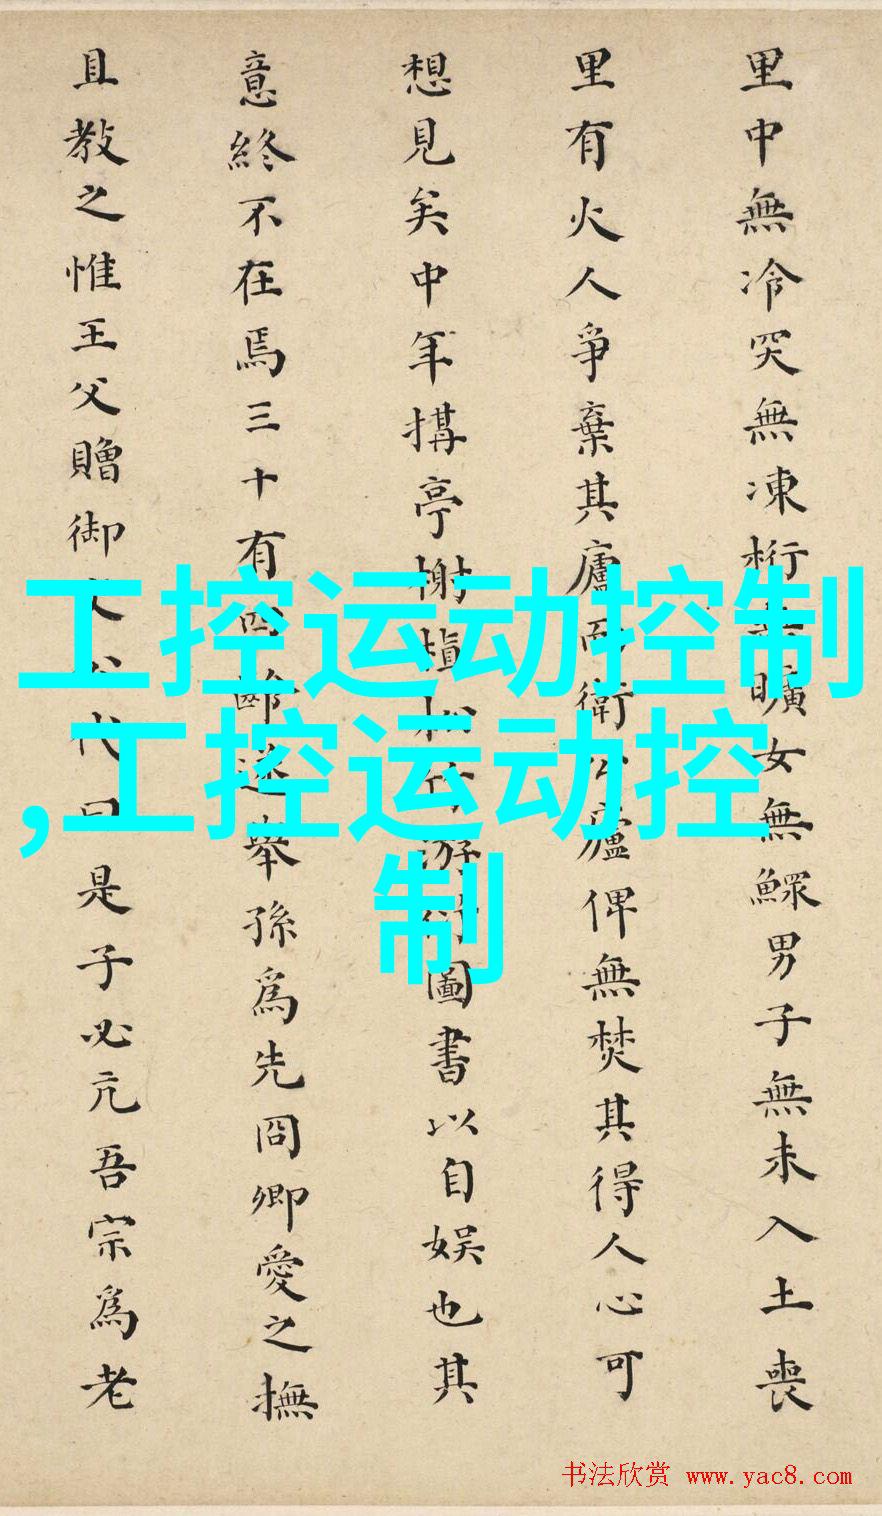 里中無冷突無凍桁無曠女無鰥男子無未入土喪
里有火人爭棄其廬而衛公廬俾無焚其得人心可
想見矣中年搆亭榭植松竹游行圖書以自娛也其
意終不在焉三十有四齡遂舉孫為先冏卿愛之撫
且教之惟王父贈御大公代曰是子必亢吾宗為老
工控运动控制
,工控运动控
制
书法欣赏 www.yac8.com